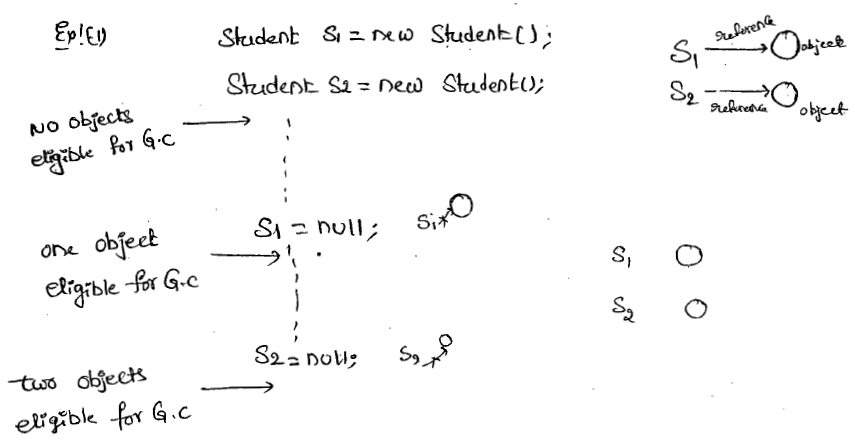 Ex!(1)
Student S1 = new Student();
Student S2 = new Student();
S1 reference object
S2 reference object
NO objects
eligible for G.C
S1 = null; S1
one object
eligible for G.C
S1
S2
S2 = null; S2
two objects
eligible for G.C